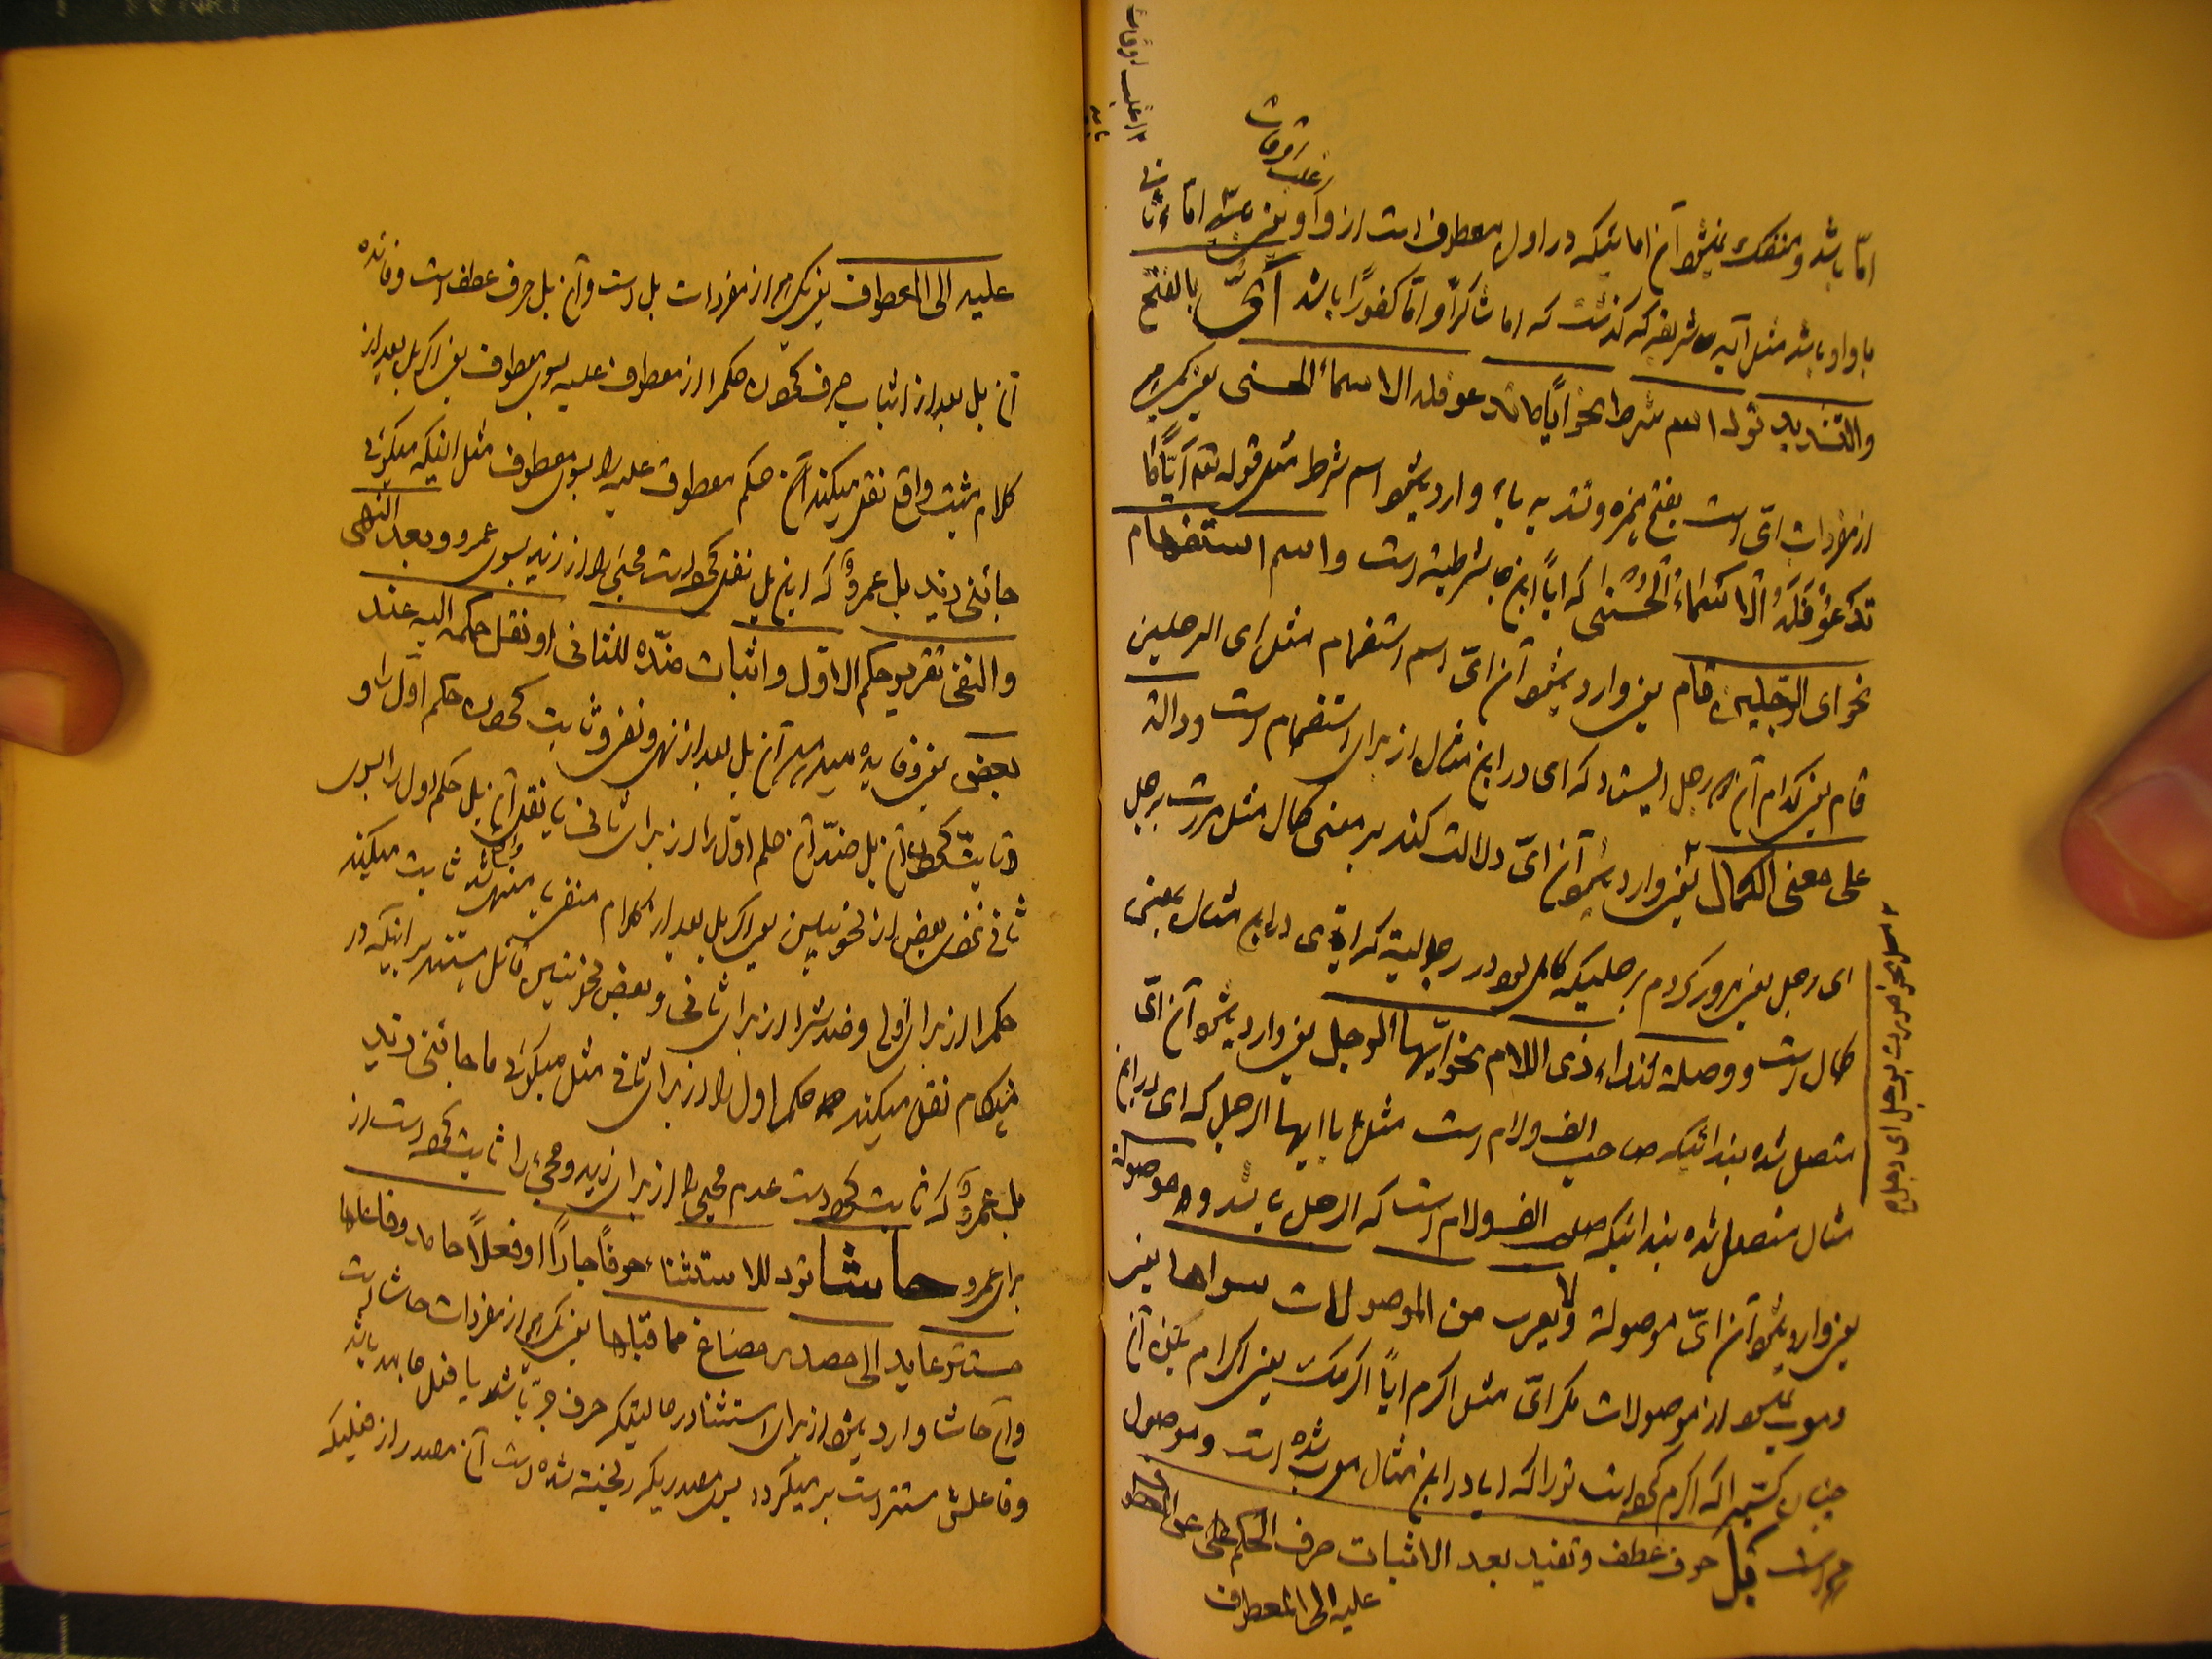 اغلب اوقات
امّا باشد و منفک نمیشود آن امائیکه در اول معطوف است از واو یعنی میشود امّاء ثانی
با واو باشد مثل آیهٔ شریفه که گذشت که اما شاکرًا و امّا کفورًا باشد أیّ بالفتح
والتشدید ترد اسم شرط نحو ایًّا ما تدعو فله الاسماء الحسنی یعنی یکی
از مفردات ایّ است بفتح همزه و تشدید یاء وارد میشود اسم شرط مثل قوله تعه أیًّا ما
تدعوْ فَلَهُ الاسماءُ الحُسْنی که ایًّا این جا شرطیة است و اسم استفهام
نحو ای الرّجلین قام یعنی وارد میشود آن ایّ اسم استفهام مثل ای الرجلین
قام یعنی کدام آن رجل ایستاد که ای در این مثال از برای استفهام است و دالة
علی معنی الکمال یعنی وارد میشود آن ایّ دلالت کند بر معنی کمال مثل مررت برجل
ای رجل یعنی مرور کردم برجلیکه کامل بود در رجولیته که ای در این مثال بمعنی
کمال است و وصلة لنداء ذی اللام نحو ایّها الرجل یعنی وارد میشود آن ایّ
متصل شده بندائیکه صاحب الف و لام است مثل یا ایها الرجل که ای در این
مثال متصل شده بندائیکه صاحب الف و لام است که الرجل باشد و موصولة
یعنی وارد میشود آن ایّ موصولة و لا یعرب من الموصولات سواها یعنی
معرب نمیشود از موصولات مگر ایّ مثل اکرم ایًّا اکرمک یعنی اکرام بکن آن
چنان کسیرا که اکرم کرده است تو را که ایا در این مثال معرب شده است و موصول
هم است بل حرف عطف و تفید بعد الاثبات صرف الحکم عن المعطوف
علیه الی المعطوف
مثل نحو مررت برجل ای رجل
علیه الی المعطوف یعنی یکی از مفردات بل است و آن بل حرف عطف است و فائده
آن بل بعد از اثبات صرف نمودن حکم را از معطوف علیه بسوی معطوف یعنی اگر بل بعد از
کلام مثبت واقع نقل میکند آن حکم معطوف علیه را بسوی معطوف مثل اینکه میگوئی
جائنی زید بل عمروٌ که این بل نقل کرده است مجیئی را از زید بسوی عمرو و بعد النهی
والنفی تقریر حکم الاوّل و اثبات ضدّه للثانی او نقل حکمه الیه عند
بعض یعنی و فایده میدهد آن بل بعد از نهی و نفی و ثابت نمودن حکم اول را و
ثابت نمودن بل ضدّ آن حکم اوّل را از برای ثانی یا نقل آن بل حکم اول را بسوی
ثانی نزد بعض از نحویین یعنی اگر بل بعد از کلام منفی یا منهی واقع شد ثابت میکند
حکم را از برای اولی و ضدش را از برای ثانی و بعض نحویین قائل هستند بر اینکه در
هنگام نقل میکند حکم اول را از برای ثانی مثل میگوئی ما جائنی زید
بل عمروٌ که ثابت کرده است عدم مجیئی را از برای زید و مجیء را ثابت کرده است از
برای عمرو حاشا ترد للاستثناء حرفًا جارًّا او فعلًا جامد و فاعلها
مستتر عاید الی مصدر مصاغ مما قبلها یعنی یکی از مفردات حاشا است
و آن حاشا وارد میشود از برای استثنا در حالتیکه حرف جرّ باشد یا فعل جامد باشد
و فاعلش مستتر است بر میگردد بسوی مصدریکه ریخته شده است آن مصدر از فعلیکه